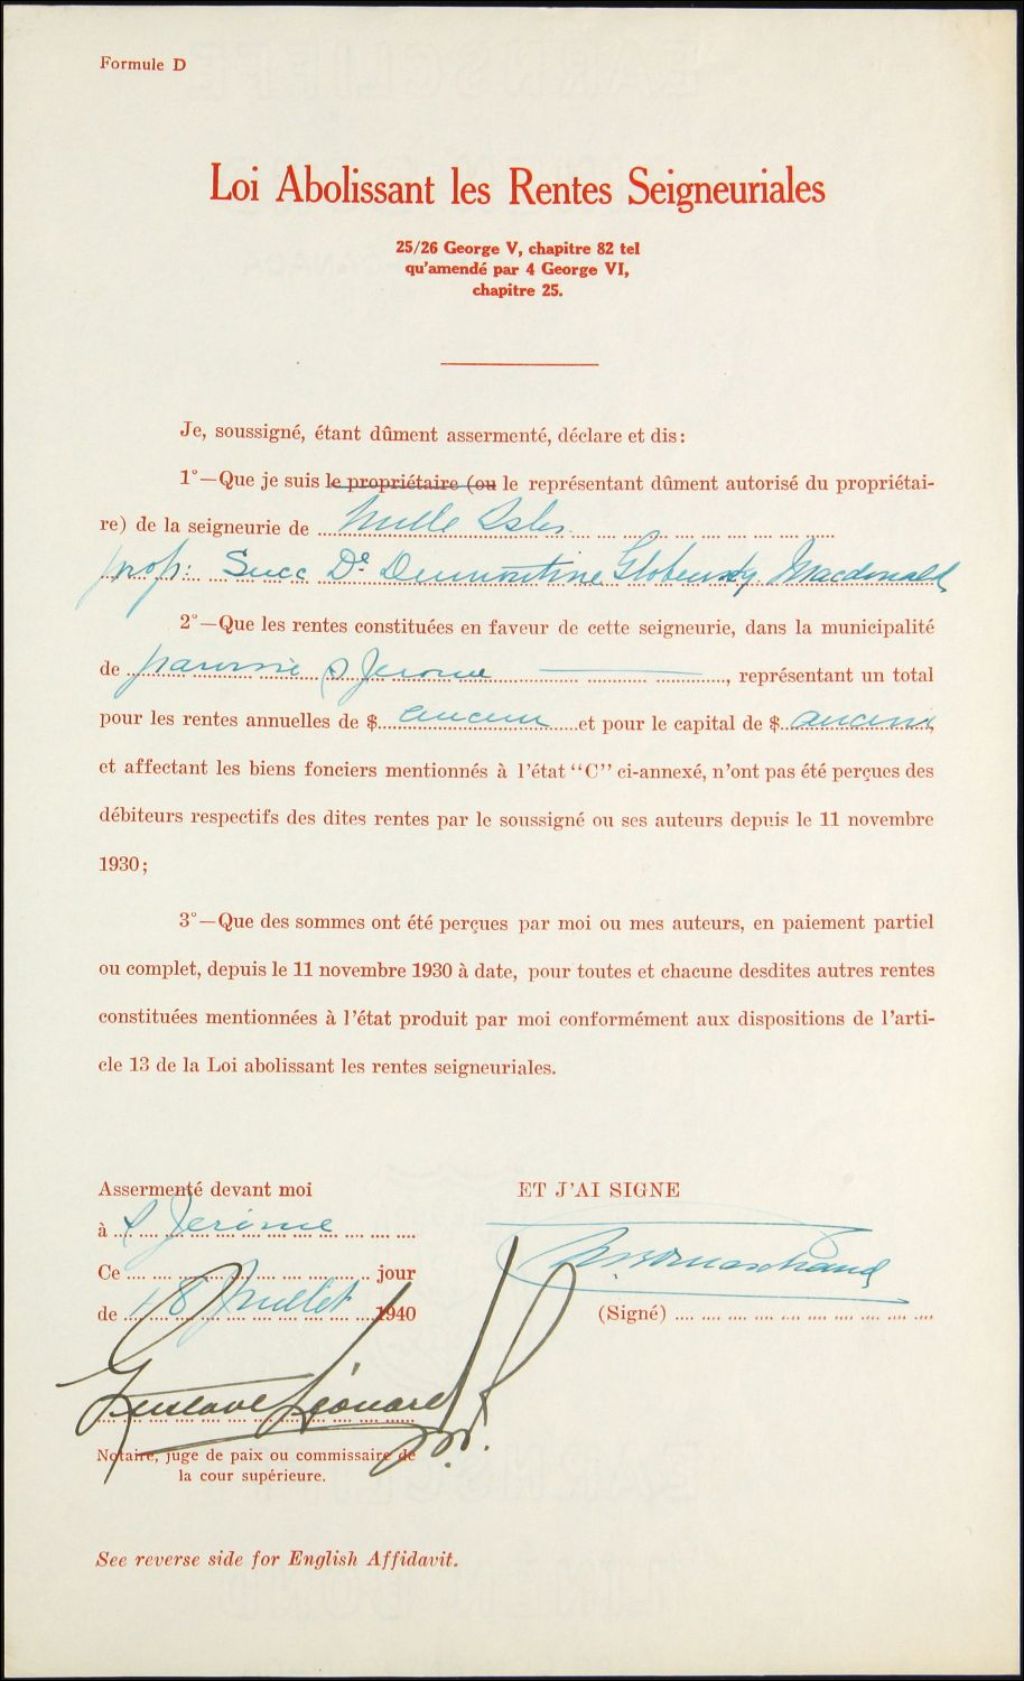 Formule D
Loi Abolissant les Rentes Seigneuriales
25/26 George V, chapitre 82 tel
qu'amendé par 4 George VI,
chapitre 25.
Je, soussigné, étant dûment assermenté, déclare et dis:
1°—Que je suis le propriétaire (ou le représentant dûment autorisé du propriétai-
re) de la seigneurie de Mille Isles
prop: Succ De Globensky Macdonald
2°—Que les rentes constituées en faveur de cette seigneurie, dans la municipalité
de paroisse S Jerome, représentant un total
pour les rentes annuelles de $ aucun et pour le capital de $ aucun
et affectant les biens fonciers mentionnés à l'état "C" ci-annexé, n'ont pas été perçues des
débiteurs respectifs des dites rentes par le soussigné ou ses auteurs depuis le 11 novembre
1930;
3°—Que des sommes ont été perçues par moi ou mes auteurs, en paiement partiel
ou complet, depuis le 11 novembre 1930 à date, pour toutes et chacune desdites autres rentes
constituées mentionnées à l'état produit par moi conformément aux dispositions de l'arti-
cle 13 de la Loi abolissant les rentes seigneuriales.
Assermenté devant moi
ET J'AI SIGNE
à S Jerome
Ce jour
de 18 Juillet 1940
(Signé)
Gustave Léonard
Notaire, juge de paix ou commissaire de
la cour supérieure.
See reverse side for English Affidavit.